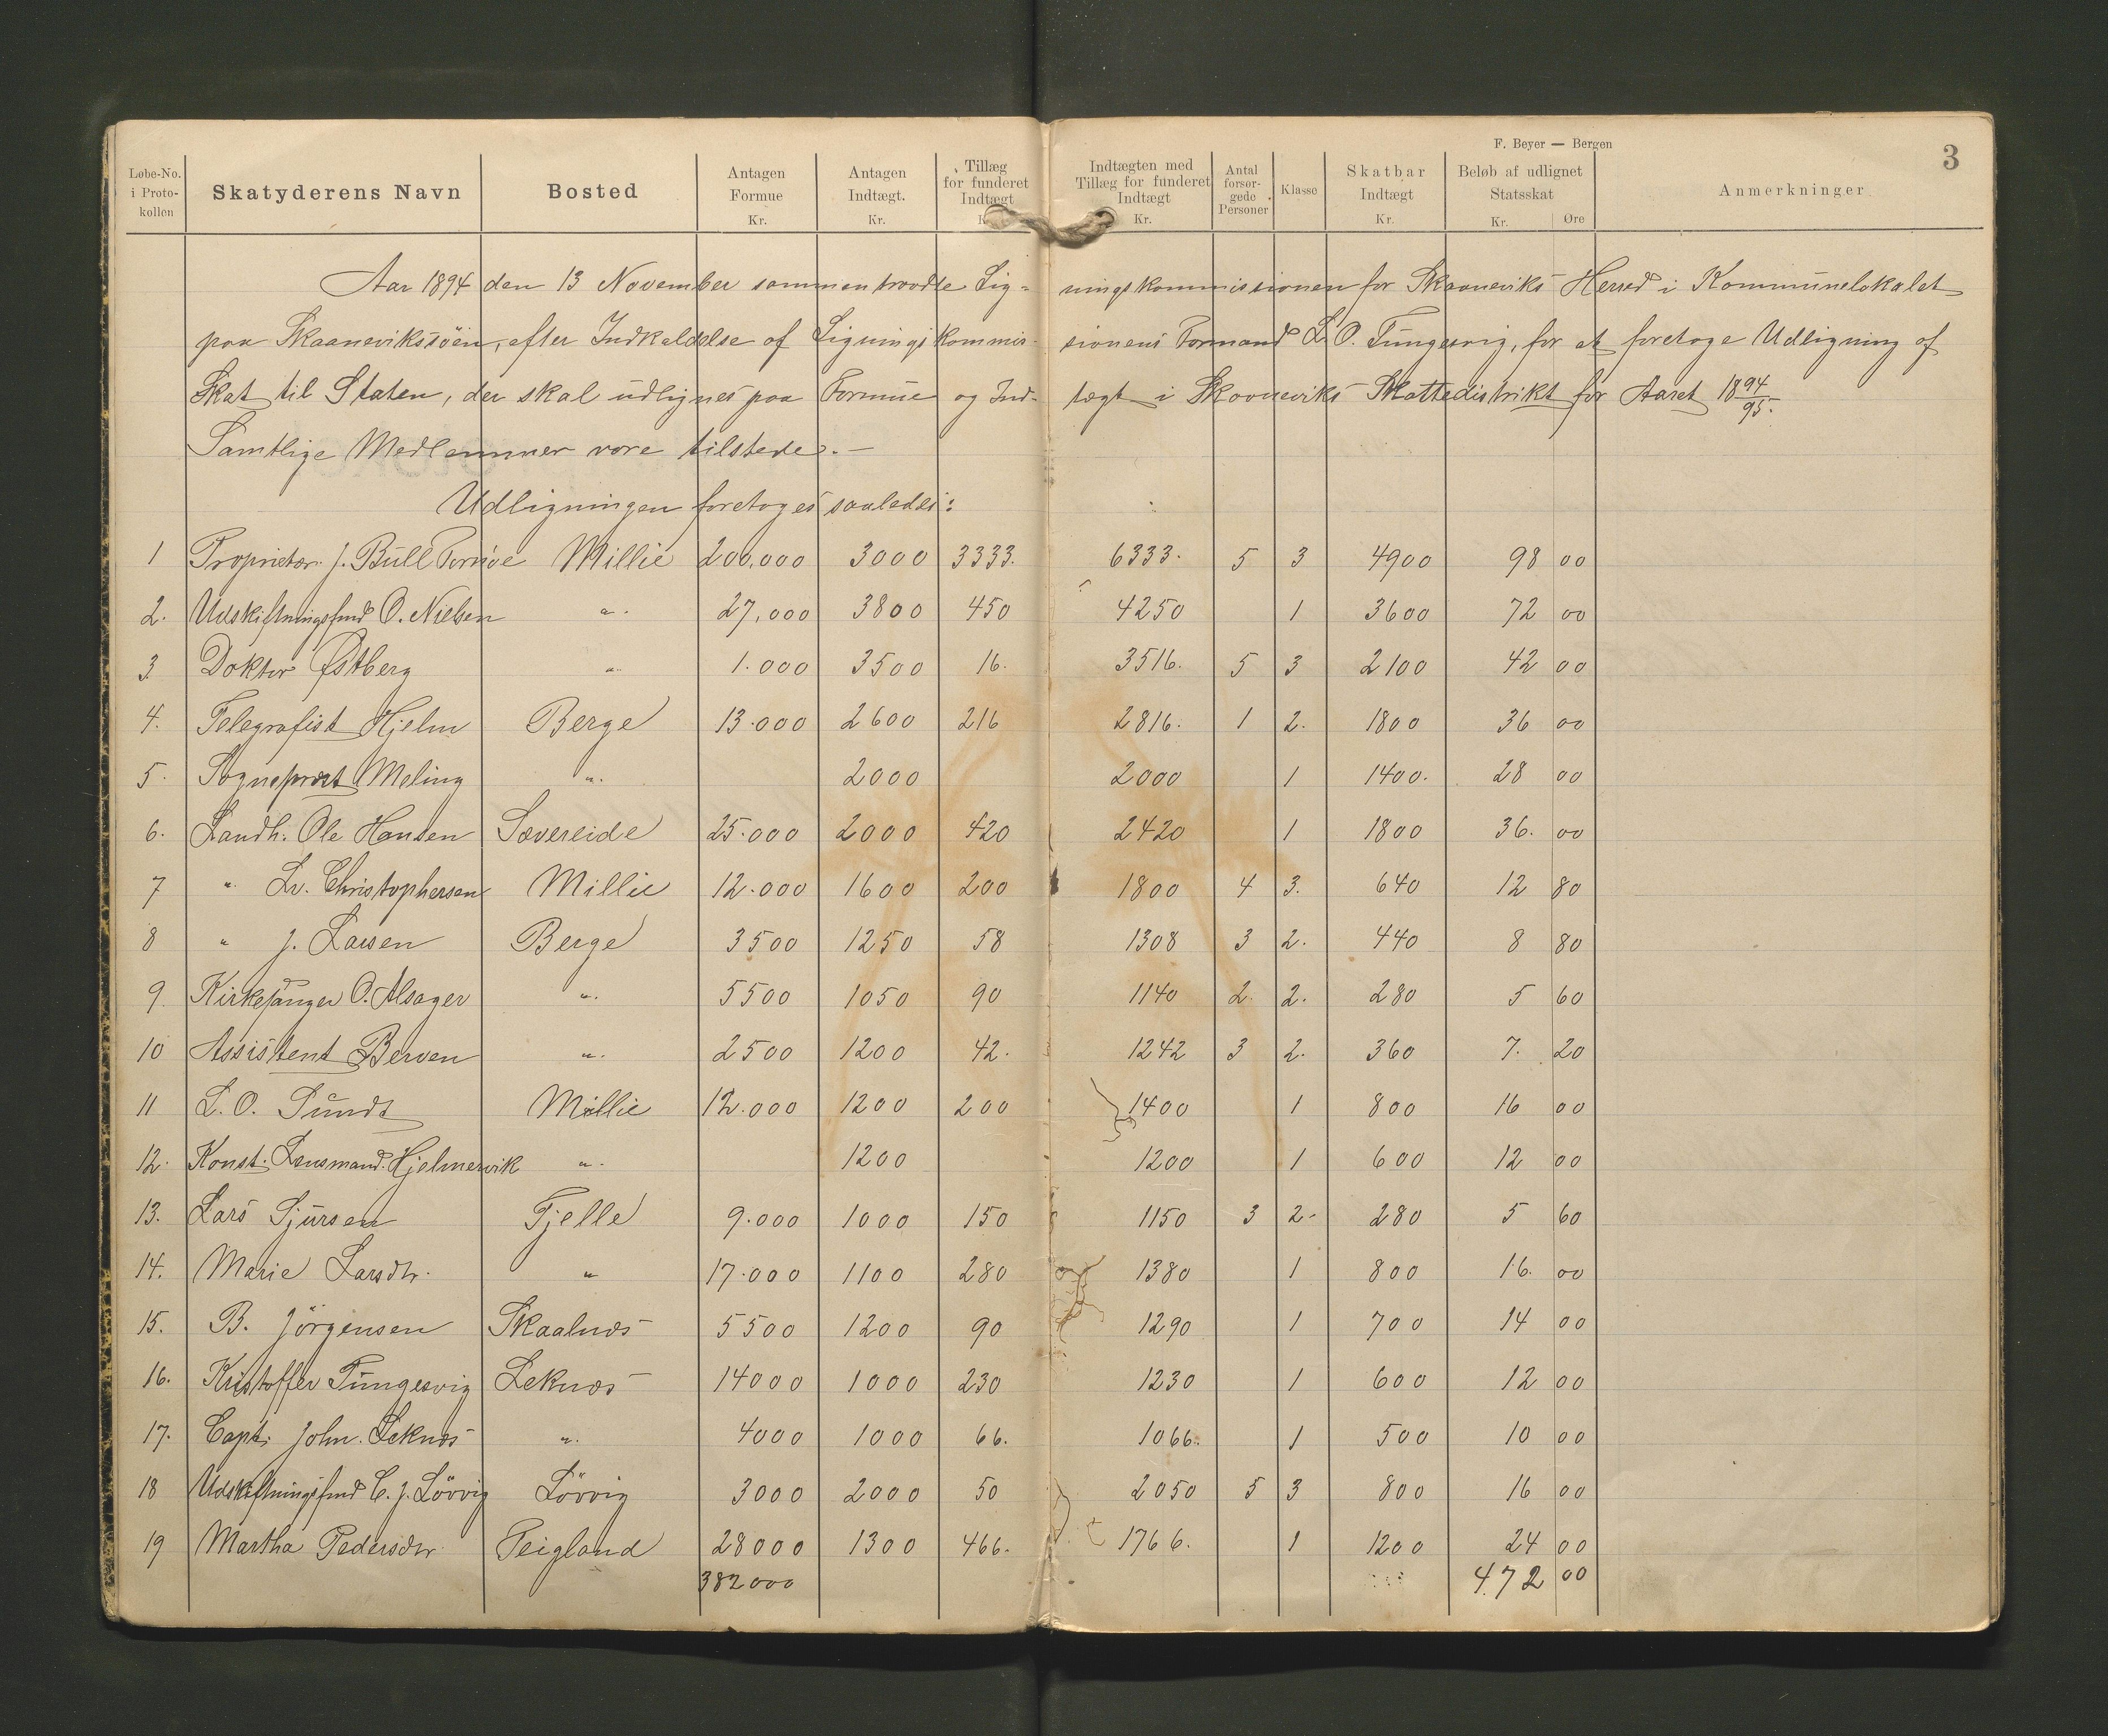 F. Beyer — Bergen
3
Løbe-No. i Proto-kollen | Skatyderens Navn | Bosted | Antagen Formue Kr. | Antagen Indtægt. Kr. | Tillæg for funderet Indtægt K | Indtægten med Tillæg for funderet Indtægt Kr. | Antal forsør-gede Personer | Klasse | Skatbar Indtægt Kr. | Beløb af udlignet Statsskat Kr. Øre | Anmerkninger
Aar 1894 den 13 November sammentraadte Lig= ningskommissionen for Skaaneviks Herred i Kommunelokalet
paa Skaanevikssöen, efter Indkaldelse af Ligningskommis- sionens Formand L. O. Tungesvig, for at foretage Udligning af
Skat til Staten, der skal udlignes paa Formue og Ind- tægt i Skaaneviks Skattedistrikt for Aaret 1894/95.
Samtlige Medlemmer vare tilstede. —
Udligningen foretoges saaledes:
1 Proprietær J. Bull Tornöe Millie 200,000 3000 3333. 6333. 5 3 4900 98 00
2. Udskiftningsfmd O. Nielsen " 27,000 3800 450 4250 1 3600 72 00
3. Doktor Østberg " 1.000 3500 16. 3516. 5 3 2100 42 00
4. Telegrafist Hjelm Berge 13.000 2600 216 2816. 1 2. 1800 36 00
5. Sogneprest Meling " 2000 2000 1 1400. 28 00
6. Landh. Ole Hansen Sævereide 25.000 2000 420 2420 1 1800 36. 00
7 " Lv. Christophersen Millie 12.000 1600 200 1800 4 3. 640 12 80
8 " J. Larsen Berge 3500 1250 58 1308 3 2. 440 8 80
9. Kirkesanger O. Alsager " 5500 1050 90 1140 2. 2. 280 5 60
10 Assistent Berven " 2500 1200 42. 1242 3 2. 360 7. 20
11 L. O. Sunde Millie 12.000 1200 200 1400 1 800 16 00
12. Konst. Lensmand Hjelmervik " 1200 1200 1 600 12 00
13. Lars Sjursen Fjelle 9.000 1000 150 1150 3 2. 280 5 60
14. Marie Larsdtr. " 17.000 1100 280 1380 1 800 16. 00
15. B. Jörgensen Skaalnæs 5500 1200 90 1290 1 700 14 00
16. Kristoffer Tungesvig Leknæs 14000 1000 230 1230 1 600 12 00
17. Capt. John Leknæs " 4000 1000 66. 1066. 1 500 10 00
18 Udskiftningsfmd C. J. Lövvig Lövvig 3000 2000 50 2050 5 3 800 16 00
19 Martha Pedersdtr. Teigland 28000 1300 466. 1766. 1 1200 24 00
382000 472 00